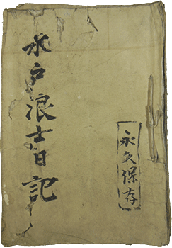 水戸浪士日記
永久保存